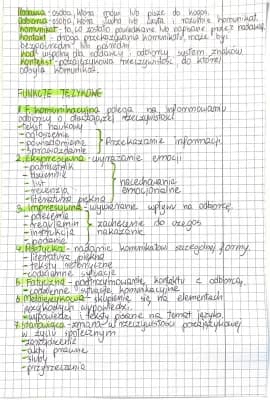 Nadawca - osoba, która mówi lub pisze do kogoś.
Odbiorca - osoba, która słucha lub czyta i rozumie komunikat.
Komunikat - to, co zostało powiedziane lub napisane przez nadawcę.
Kontakt - droga przekazywania komunikatu, może być
bezpośredni lub pośredni
Kod - wspólny dla nadawcy i odbiorcy system znaków
Kontekst - pozajęzykowa rzeczywistość, do której
odsyła komunikat.
FUNKCJE JĘZYKOWE
1. F. komunikacyjna polega na informowaniu
odbiorcy o otaczającej rzeczywistości
- tekst naukowy
- ogłoszenie
- powiadomienie
- sprawozdanie
Przekazanie informacji
2. Ekspresywna - wyrażanie emocji
- pamiętnik
- dziennik
- list
- recenzja
- literatura piękna
nacechowanie
emocjonalne
3. Impresywna - wywieranie wpływu na odbiorcę.
- polecenie
- regulamin
- instrukcja
- podanie
zachęcenie do czegoś
nakazanie
4. Poetycka - nadanie komunikatowi szczególnej formy.
- literatura piękna
- teksty retoryczne
- codzienne sytuacje
5. Fatyczna - podtrzymywanie kontaktu z odbiorcą.
- codzienne sytuacje komunikacyjne
6. Metajęzykowa - skupienie się na elementach
językowych wypowiedzi.
- wypowiedzi i teksty pisane na temat języka.
7. Stanowiąca - zmiana w rzeczywistości pozajęzykowej
w życiu społecznym
- zarządzenie
- akty prawne
- śluby
- przyrzeczenia